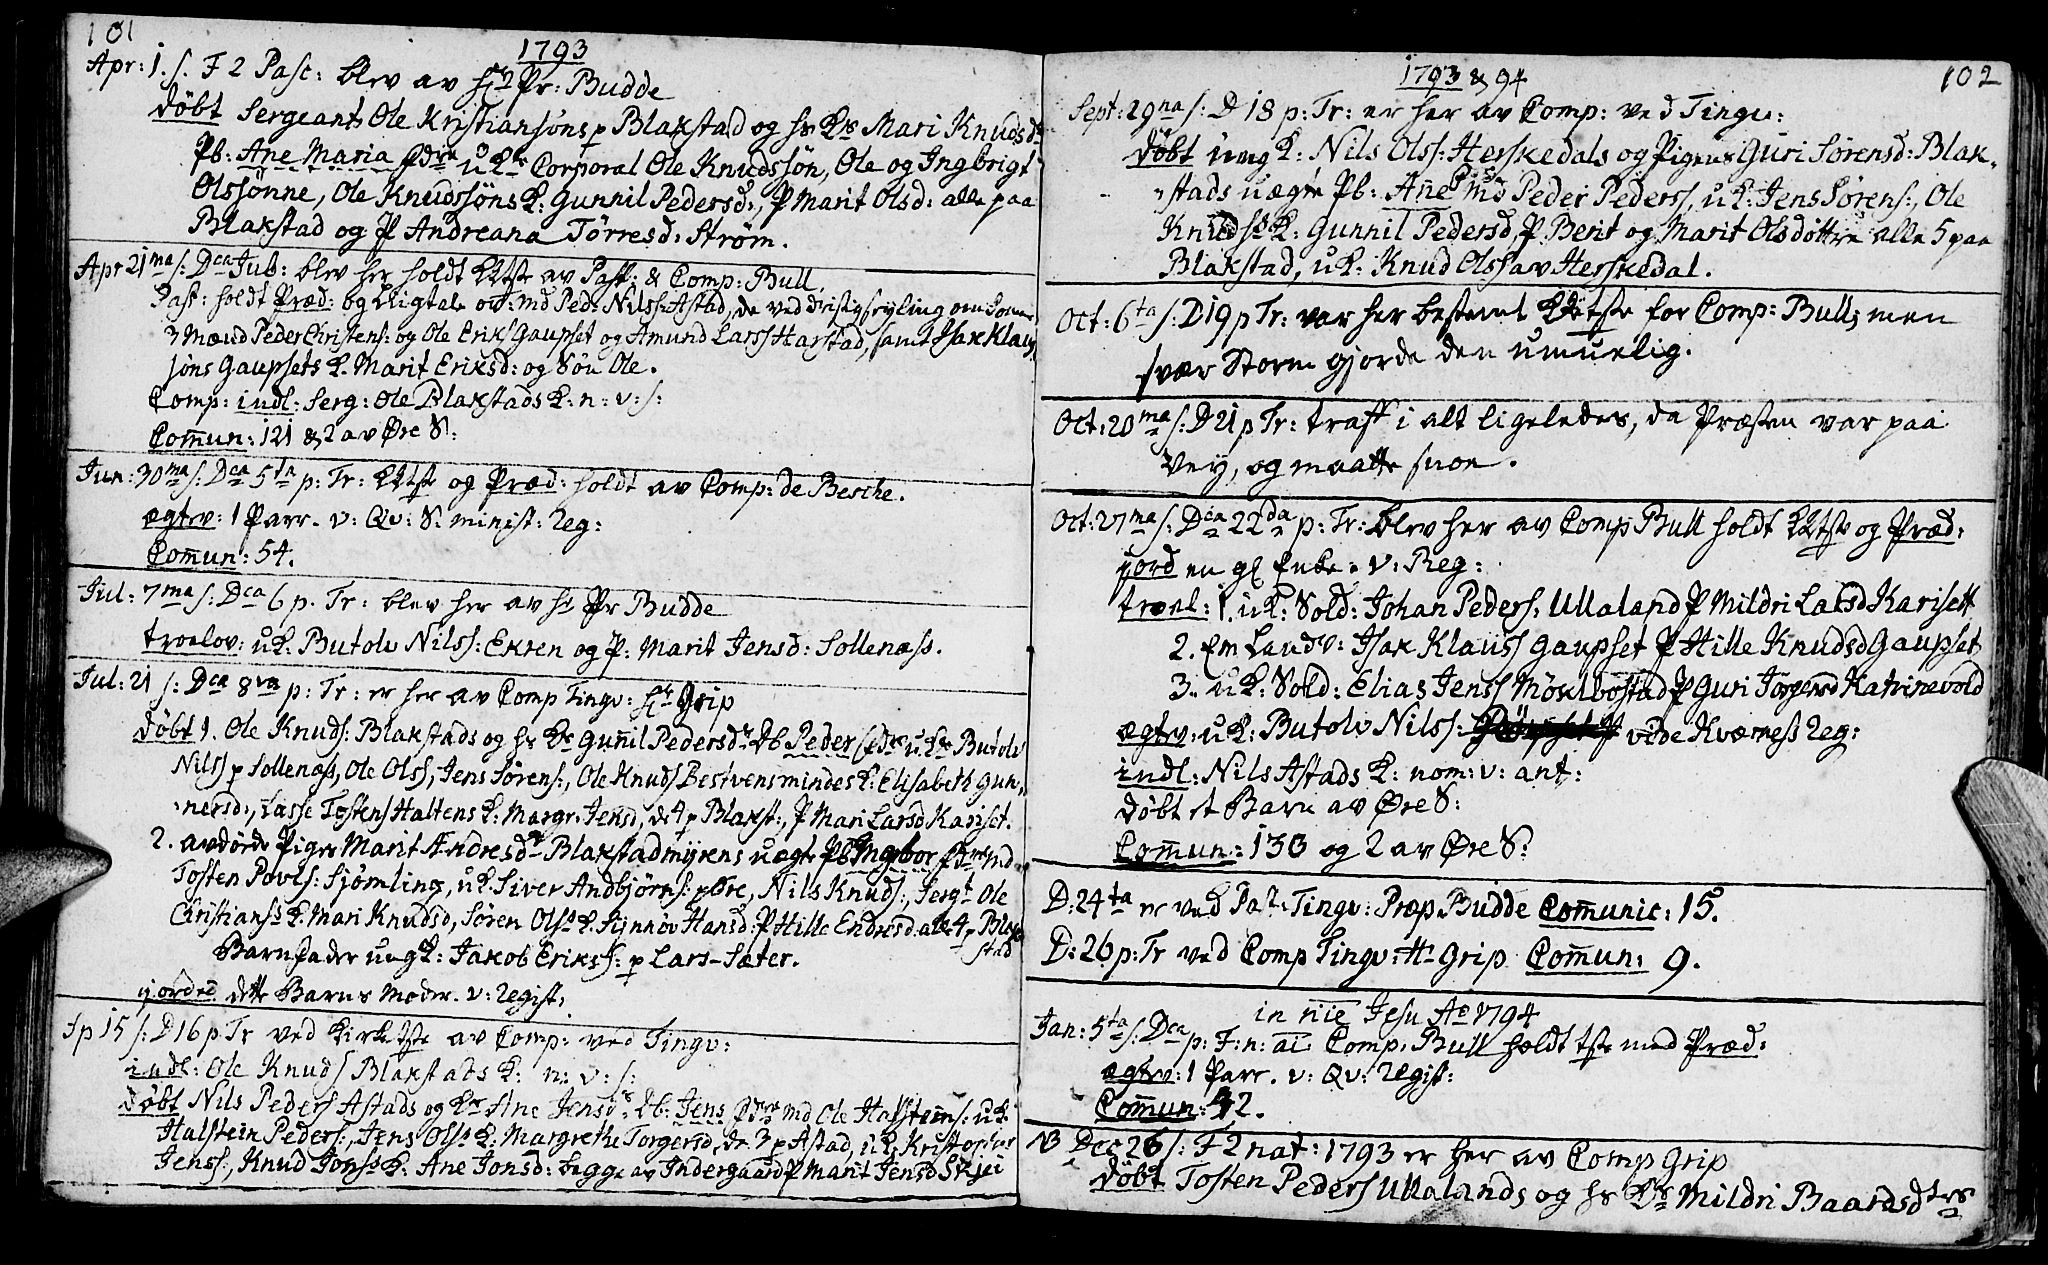 101
1793
Apr: 1. s. F 2 Pasc: blev av Hr Pr: Budde
döbt Sergeants Ole Kristiansöns p Blakstad og hs Ks Mari Knudsdr
Pb: Ane Maria uKr Corporal Ole Knudssön, Ole og Ingbrigt
Olssönne, Ole Knudssöns K: Gunnil Pedersd:, P Marit Olsd: alle paa
Blakstad og P Andreana Törresd: Ström.
Apr 21ma s: Dca Jub: blev her holdt av Past: & Comp: Bull.
Past: holdt Præd: og Ligtale ov: md Ped: Nilss: Astad, de ved seyling om Somer
3 Mænd Peder Christens: og Ole Eriks Gaupset og Amund Larss Harstad, samt Isak Klau
söns Gaupsets K. Marit Eriksd: og Sön Ole.
Comp: indl: Serg: Ole Blakstads K: n: v: s:
Com̄un: 121 & 2 av Øre S:
Jun: 30ma s: Dca 5ta p: Tr: og Præd: holdt av Comp: de Besche.
ægtv: 1 Parr. v: Qv: S. minist: Reg:
Com̄un: 54.
Jul: 7ma s: Dca 6 p. Tr: blev her av hr Pr Budde
troelov: uK: Butolv Nilss: Ekren og P: Marit Jensd: Sollenæss.
Jul: 21 s: Dca 8va p: Tr: er her av Comp Tingv: Hr Grip
döbt 1. Ole Knuds: Blakstads og hs Ks Gun̄il Pedersdr Db Peder uKr Butolv
Nilss p Sollenæs, Ole Olss, Jens Sörens:, Ole Knuds Bestvensmindes K: Elisabeth Gun,
:nersd:, Lasse Tostens Haltens K: Margr: Jensd, de 4 p Blakst:, P Mari Larsd Kariset.
2. avdöde Piges Marit Andresdr Blakstadmyrens uægte Pb Ingbor md
Tosten Povls: Sjömling, uK. Siver Andbjörns: p Øre, Nils Knuds:, Sergt Ole
Christianss K. Mari Knudsd, Sören Olss K. Sinnöv Hansd: P Hille Endresd: alle 4 p Blak
stad
Barnfader ungK: Jakob Erikss: p Lars-Sæter.
jorded dette Barns Moder. v: Regist:
Sp 15 s: D 16 p: Tr ved Kirketste av Comp: ved Tingv:
indl: Ole Knuds Blakstads K: n: v: s:
döbt Nils Peders Astads og Ks Ane Jensd: Db: Jens md Ole Halstens: uK.
Halstein Peders:, Jens Olss K: Margrethe Torgersd, de 3 p Astad, uK. Kristopher
Jenss:, Knud Jonss K: Ane Jonsd: begge av Indergaard P Marit Jensd Skjei
102
1793 & 94
Sept: 29na s: D 18 p: Tr: er her av Comp: ved Tingv:
döbt ungK: Nils Olss: Herskedals og Pigens Guri Sörensd: Blak-
stads uægte Pb: Ane md Peder Peders, uK: Jens Sörens:, Ole
Knudss K: Gunnil Pedersd, P Berit og Marit Olsdöttre alle 5 paa
Blakstad, uK: Knud Olss av Herskedal.
Oct: 6ta s: D 19 p Tr: var her bestemt for Comp: Bull; men
svær Storm gjorde den umuelig.
Oct: 20ma s: D 21 p Tr: traff i alt ligeledes, da Præsten var paa
Vey, og maatte snoe.
Oct: 27ma s: Dca 22da p: Tr: blev her av Comp Bull holdt og Præd:
jord en gl Enke. v: Reg:
troel: 1. uK: Sold: Johan Peders: Ullaland P Mildri Larsd Karisett
2. Em Landv: Isak Klauss Gaupset P Hille Knudsd Gaupset
3. uK: Sold: Elias Jenss Möselbostad P Guri Törgersd Katrinevold
ægtv: uK: Butolv Nilss: vide Kværness Reg:
indl: Nils Astads K: nom: v: ant:
döbt et Barn av Øre S:
Com̄un: 130 og 2 av Øre S:
D: 24ta er ved Past: Tingv: Præp Budde Com̄unic: 15.
D: 26 p: Tr ved Comp Tingv: Hr Grip Com̄un: 9.
in nie Jesu Ao 1794
Jan: 5ta s: Dca p: F: n: ai Comp: Bull holdt tste med Præd:
ægtv: 1 Parr. v: Qv: Regist:
Com̄un: 42.
NB Dec 26 s: F 2 nat: 1793 er her av Comp Grip
döbt Tosten Peders Ullalands og hs Ks Mildri Baardsdtrs